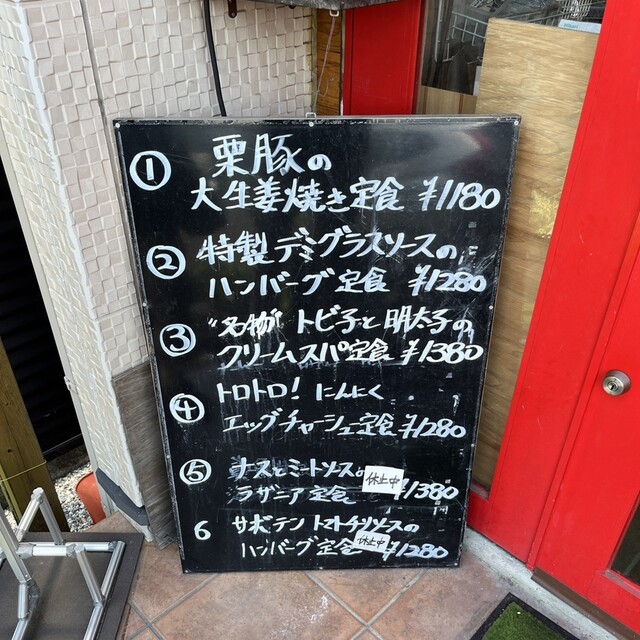 ① 栗豚の
大生姜焼き定食 ¥1180
② 特製デミグラスソースの
ハンバーグ定食 ¥1280
③ "名物" トビ子と明太子の
クリームスパ定食 ¥1380
④ トロトロ! にんにく
エッグチャーシュー定食 ¥1280
⑤ ナスとミートソースの
ラザニア定食 休止中 ¥1380
6 サボテン トマトチリソースの
ハンバーグ定食 休止中 ¥1280